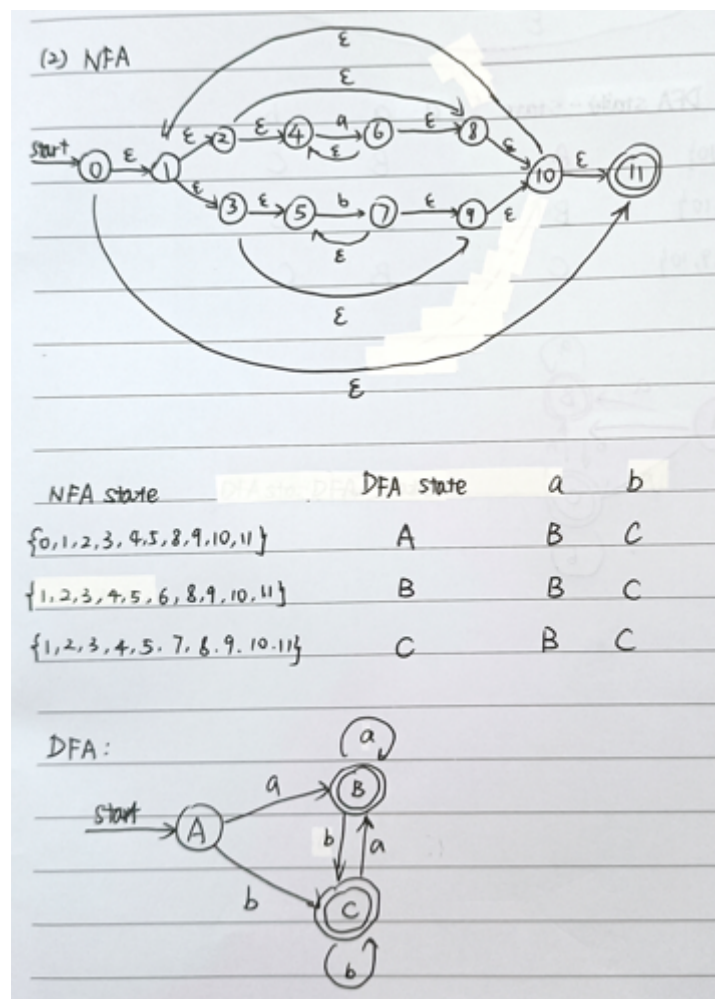 (2) NFA
ε
ε
start 0 ε 1 ε 2 ε 4 a 6 ε 8 ε 10 ε 11
ε
ε 3 ε 5 b 7 ε 9 ε
ε
ε
ε
NFA state DFA state a b
{0,1,2,3,4,5,8,9,10,11} A B C
{1,2,3,4,5,6,8,9,10,11} B B C
{1,2,3,4,5.7,8.9.10.11} C B C
DFA:
a
start A a B
b a
b C
b